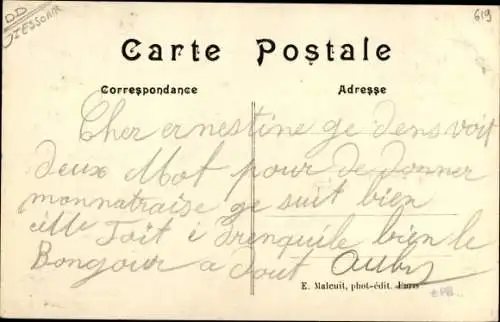 DD
TESSOAR
619
Carte Postale
Correspondance
Adresse
Cher ernestine ge dens voit
deux Mot pour de donner
monnatraise ge suit bien
ille Toit i Trenquile bien le
Bongour a Tout Auby
E. Malcuit, phot-édit. Paris